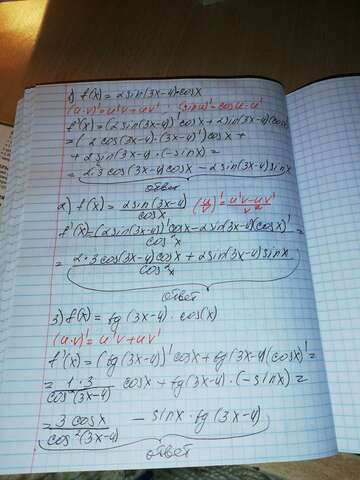 1) f(x) = 2sin(3x-4)·cosx
(u·v)' = u'v + uv' (sin u)' = cos u · u'
f'(x) = (2sin(3x-4))'cosx + 2sin(3x-4)(cosx)'
= (2cos(3x-4)·(3x-4)')cosx +
+ 2sin(3x-4)·(-sinx) =
= 2·3cos(3x-4)cosx - 2sin(3x-4)sinx
ответ
2) f(x) = 2sin(3x-4)/cosx (u/v)' = (u'v - uv')/v²
f'(x) = ((2sin(3x-4))'cosx - 2sin(3x-4)(cosx)')/cos²x =
= (2·3cos(3x-4)cosx + 2sin(3x-4)sinx)/cos²x
ответ
3) f(x) = tg(3x-4)·cos(x)
(u·v)' = u'v + uv'
f'(x) = (tg(3x-4))'cosx + tg(3x-4)(cosx)' =
= (1·3)/cos²(3x-4) cosx + tg(3x-4)·(-sinx) =
= 3cosx/cos²(3x-4) - sinx·tg(3x-4)
ответ